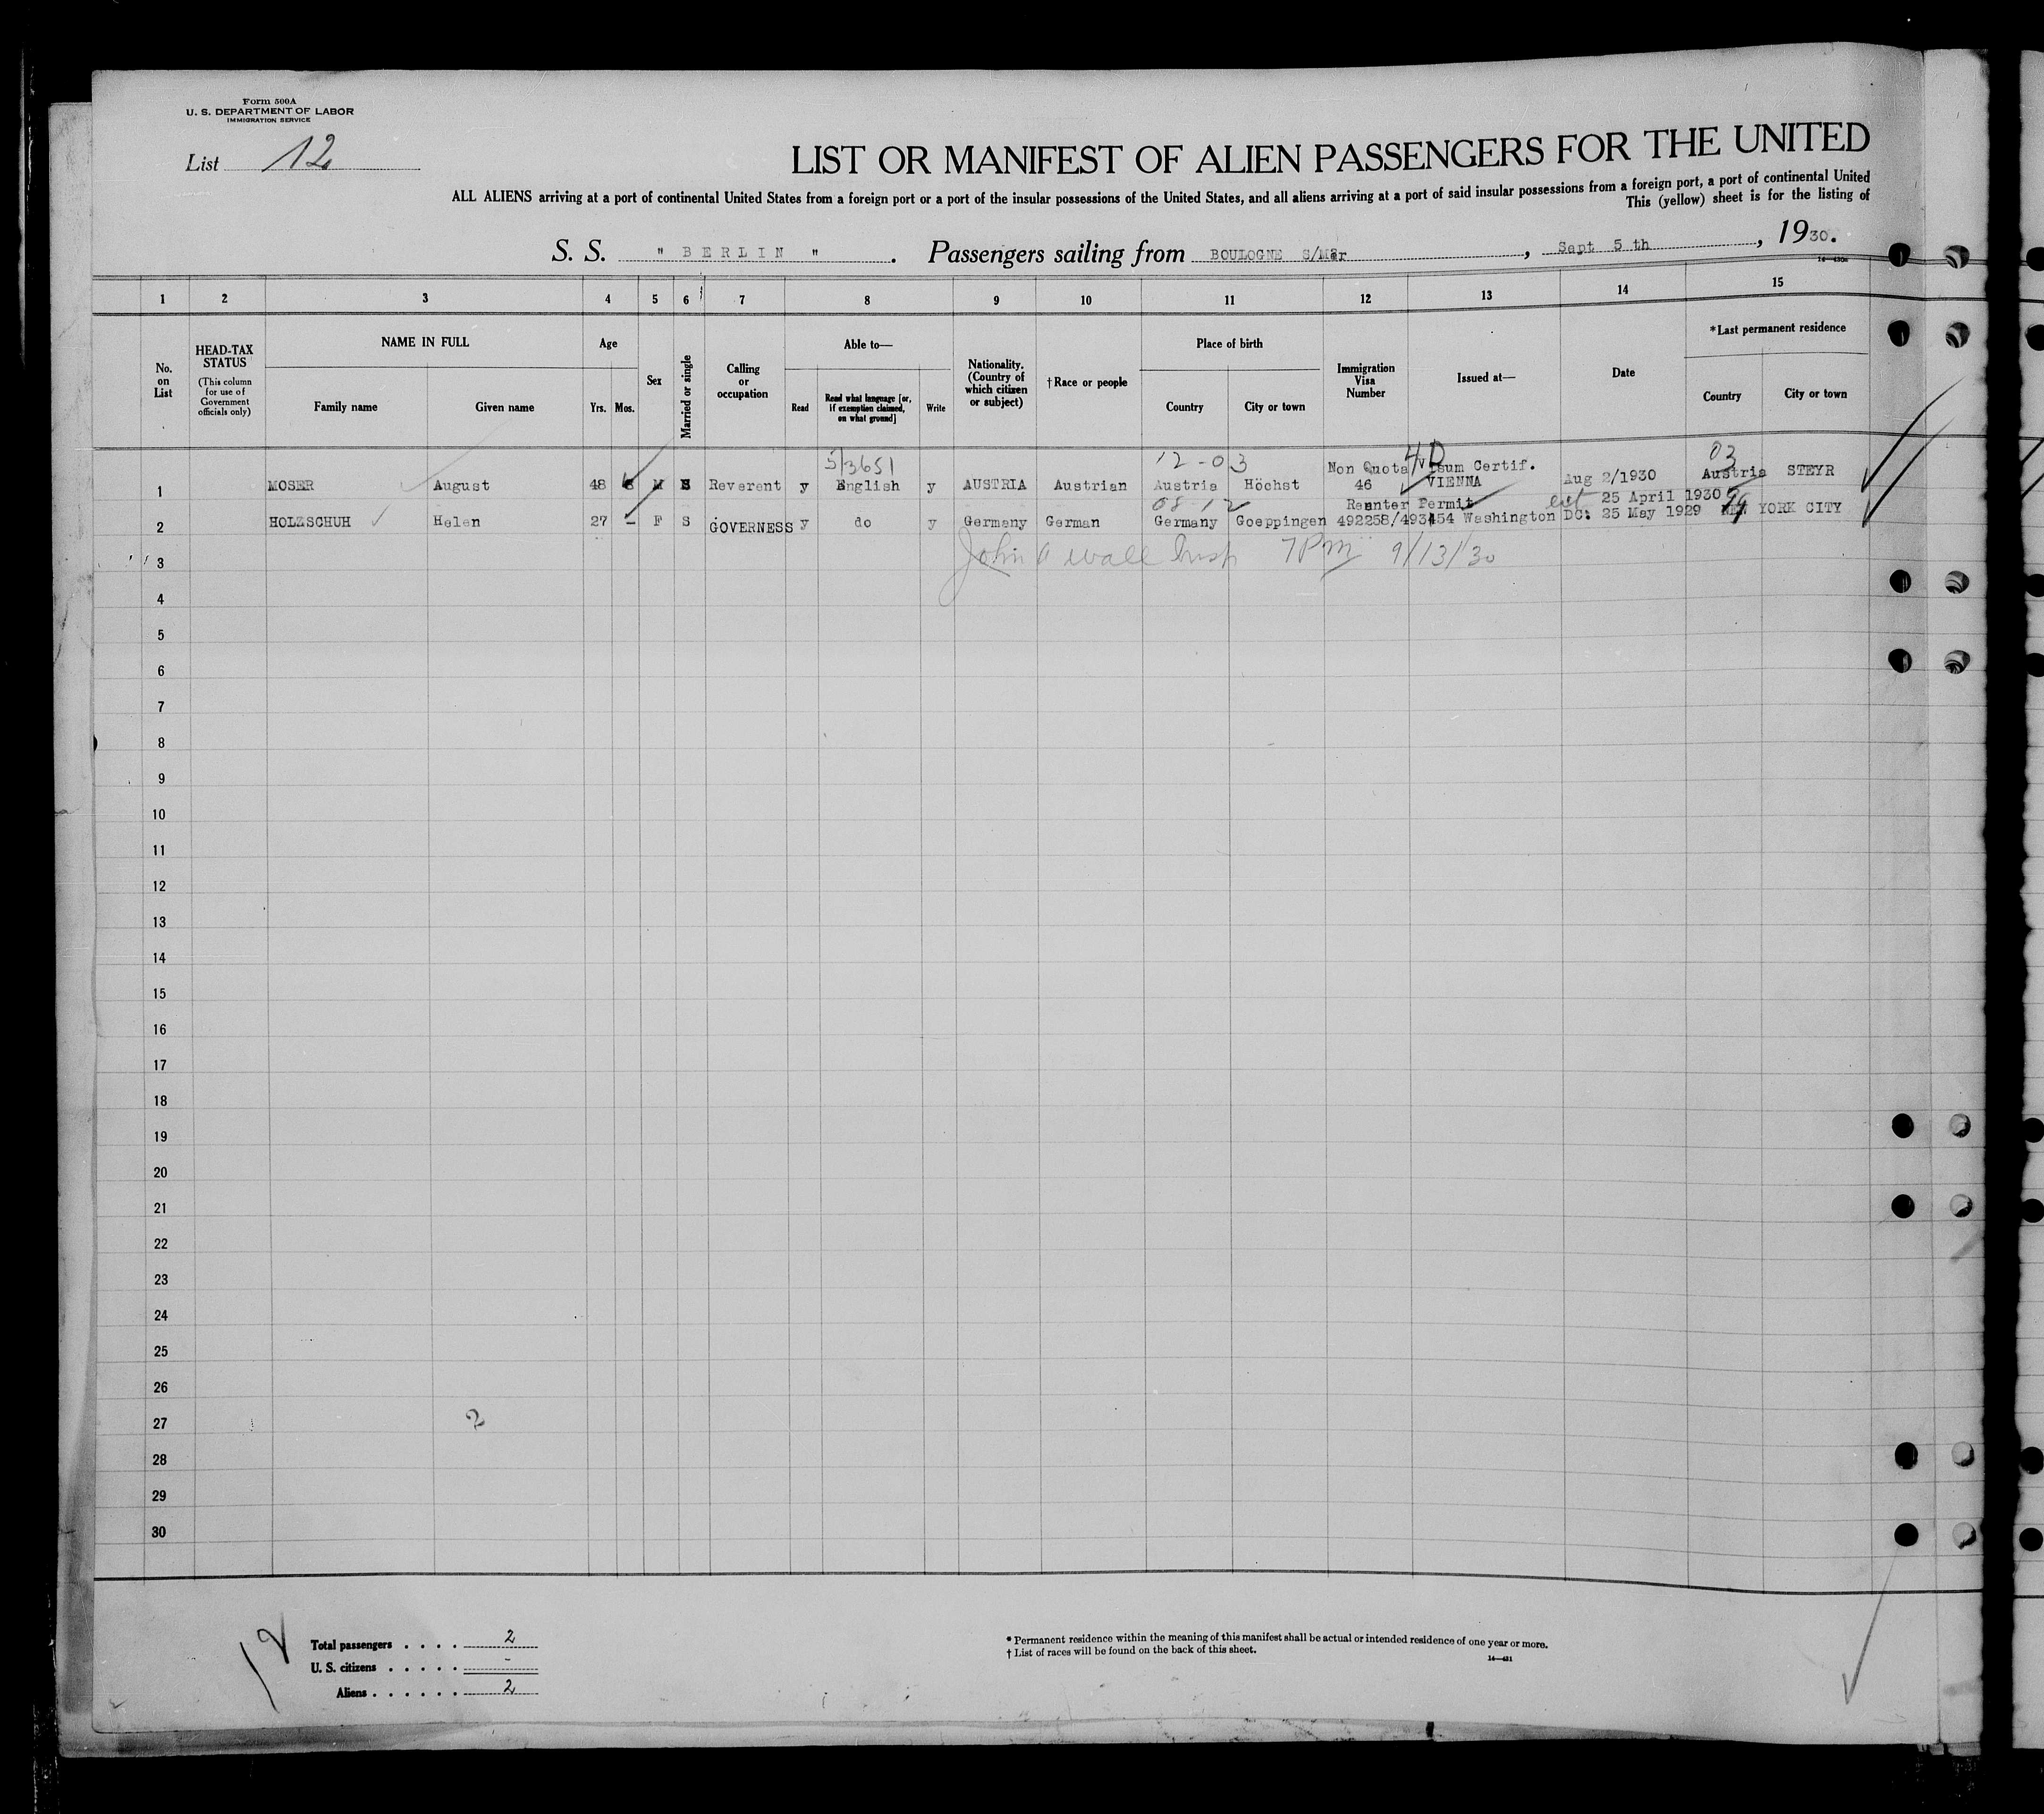 Form 500A
U. S. DEPARTMENT OF LABOR
IMMIGRATION SERVICE
List 12
LIST OR MANIFEST OF ALIEN PASSENGERS FOR THE UNITED
ALL ALIENS arriving at a port of continental United States from a foreign port or a port of the insular possessions of the United States, and all aliens arriving at a port of said insular possessions from a foreign port, a port of continental United
This (yellow) sheet is for the listing of
S. S. " BERLIN " . Passengers sailing from BOULOGNE S/Mer , Sept 5 th , 1930.
1 2 3 4 5 6 7 8 9 10 11 12 13 14 15
No. on List
HEAD-TAX STATUS
(This column for use of Government officials only)
NAME IN FULL
Family name Given name
Age
Yrs. Mos.
Sex
Married or single
Calling or occupation
Able to—
Read
Read what language [or, if exemption claimed, on what ground]
Write
Nationality. (Country of which citizen or subject)
† Race or people
Place of birth
Country City or town
Immigration Visa Number
Issued at—
Date
*Last permanent residence
Country City or town
5/3651 12-03 Non Quota Visum Certif. 4D 03
1 MOSER August 48 M S Reverent y English y AUSTRIA Austrian Austria Höchst 46 VIENNA Aug 2/1930 Austria STEYR
08-12 Reenter Permit ext 25 April 1930 99
2 HOLZSCHUH Helen 27 - F S GOVERNESS y do y Germany German Germany Goeppingen 492258/493454 Washington DC: 25 May 1929 NEW YORK CITY
3 John A Wall Insp 7PM 9/13/30
4
5
6
7
8
9
10
11
12
13
14
15
16
17
18
19
20
21
22
23
24
25
26
27 2
28
29
30
12
Total passengers . . . . 2
U. S. citizens . . . . . -
Aliens . . . . . . 2
* Permanent residence within the meaning of this manifest shall be actual or intended residence of one year or more.
† List of races will be found on the back of this sheet.
14—431